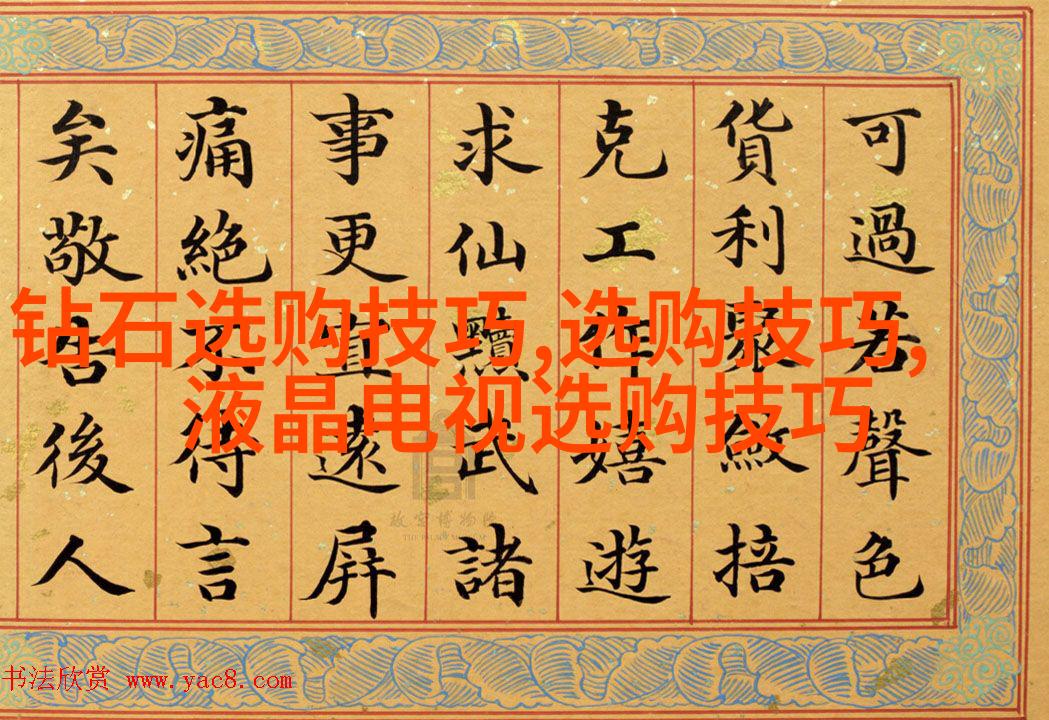 可過若聲色
貨利聚斂掊
克工作嬉遊
求仙黷武諸
事更宜遠屏
痛絕不待言
矣敬告後人
钻石选购技巧,选购技巧,
液晶电视选购技巧
故宫博物院
THE PALACE MUSEUM
书法欣赏 www.yac8.com